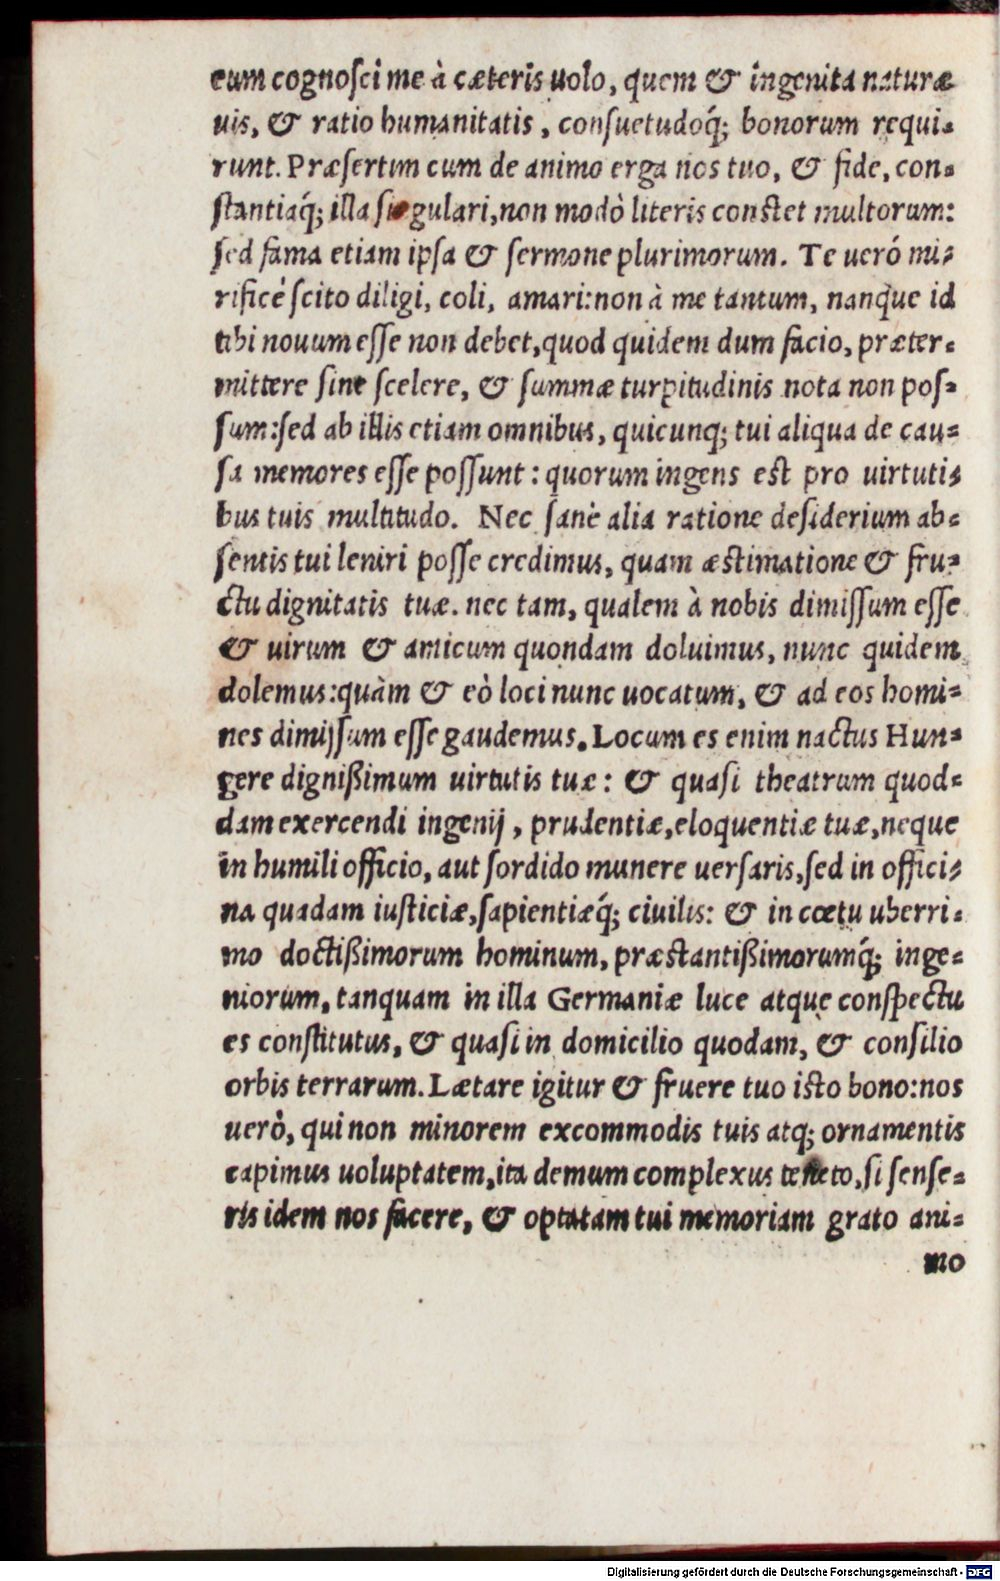 eum cognosci me à cæteris uolo, quem & ingenita naturæ
uis, & ratio humanitatis, consuetudoq́; bonorum requi-
runt. Præsertim cum de animo erga nos tuo, & fide, con-
stantiaq́; illa singulari, non modò literis constet multorum:
sed fama etiam ipsa & sermone plurimorum. Te ueró mi-
rificè scito diligi, coli, amari: non à me tantum, nanque id
tibi nouum esse non debet, quod quidem dum facio, præter-
mittere sine scelere, & summæ turpitudinis nota non pos-
sum: sed ab illis etiam omnibus, quicunq; tui aliqua de cau-
sa memores esse possunt: quorum ingens est pro uirtuti-
bus tuis multitudo. Nec sanè alia ratione desiderium ab-
sentis tui leniri posse credimus, quam æstimatione & fru-
ctu dignitatis tuæ. nec tam, qualem à nobis dimissum esse
& uirum & amicum quondam doluimus, nunc quidem
dolemus: quàm & eò loci nunc uocatum, & ad eos homi-
nes dimissum esse gaudemus. Locum es enim nactus Hun-
gere dignißimum uirtutis tuæ: & quasi theatrum quod-
dam exercendi ingenij, prudentiæ, eloquentiæ tuæ, neque
in humili officio, aut sordido munere uersaris, sed in offici-
na quadam iusticiæ, sapientiæq́; ciuilis: & in cœtu uberri-
mo doctißimorum hominum, præstantißimorumq́; inge-
niorum, tanquam in illa Germaniæ luce atque conspectu
es constitutus, & quasi in domicilio quodam, & consilio
orbis terrarum. Lætare igitur & fruere tuo isto bono: nos
uerò, qui non minorem ex commodis tuis atq; ornamentis
capimus uoluptatem, ita demum complexus teneto, si sense-
ris idem nos facere, & optatam tui memoriam grato ani-
mo
Digitalisierung gefördert durch die Deutsche Forschungsgemeinschaft - DFG